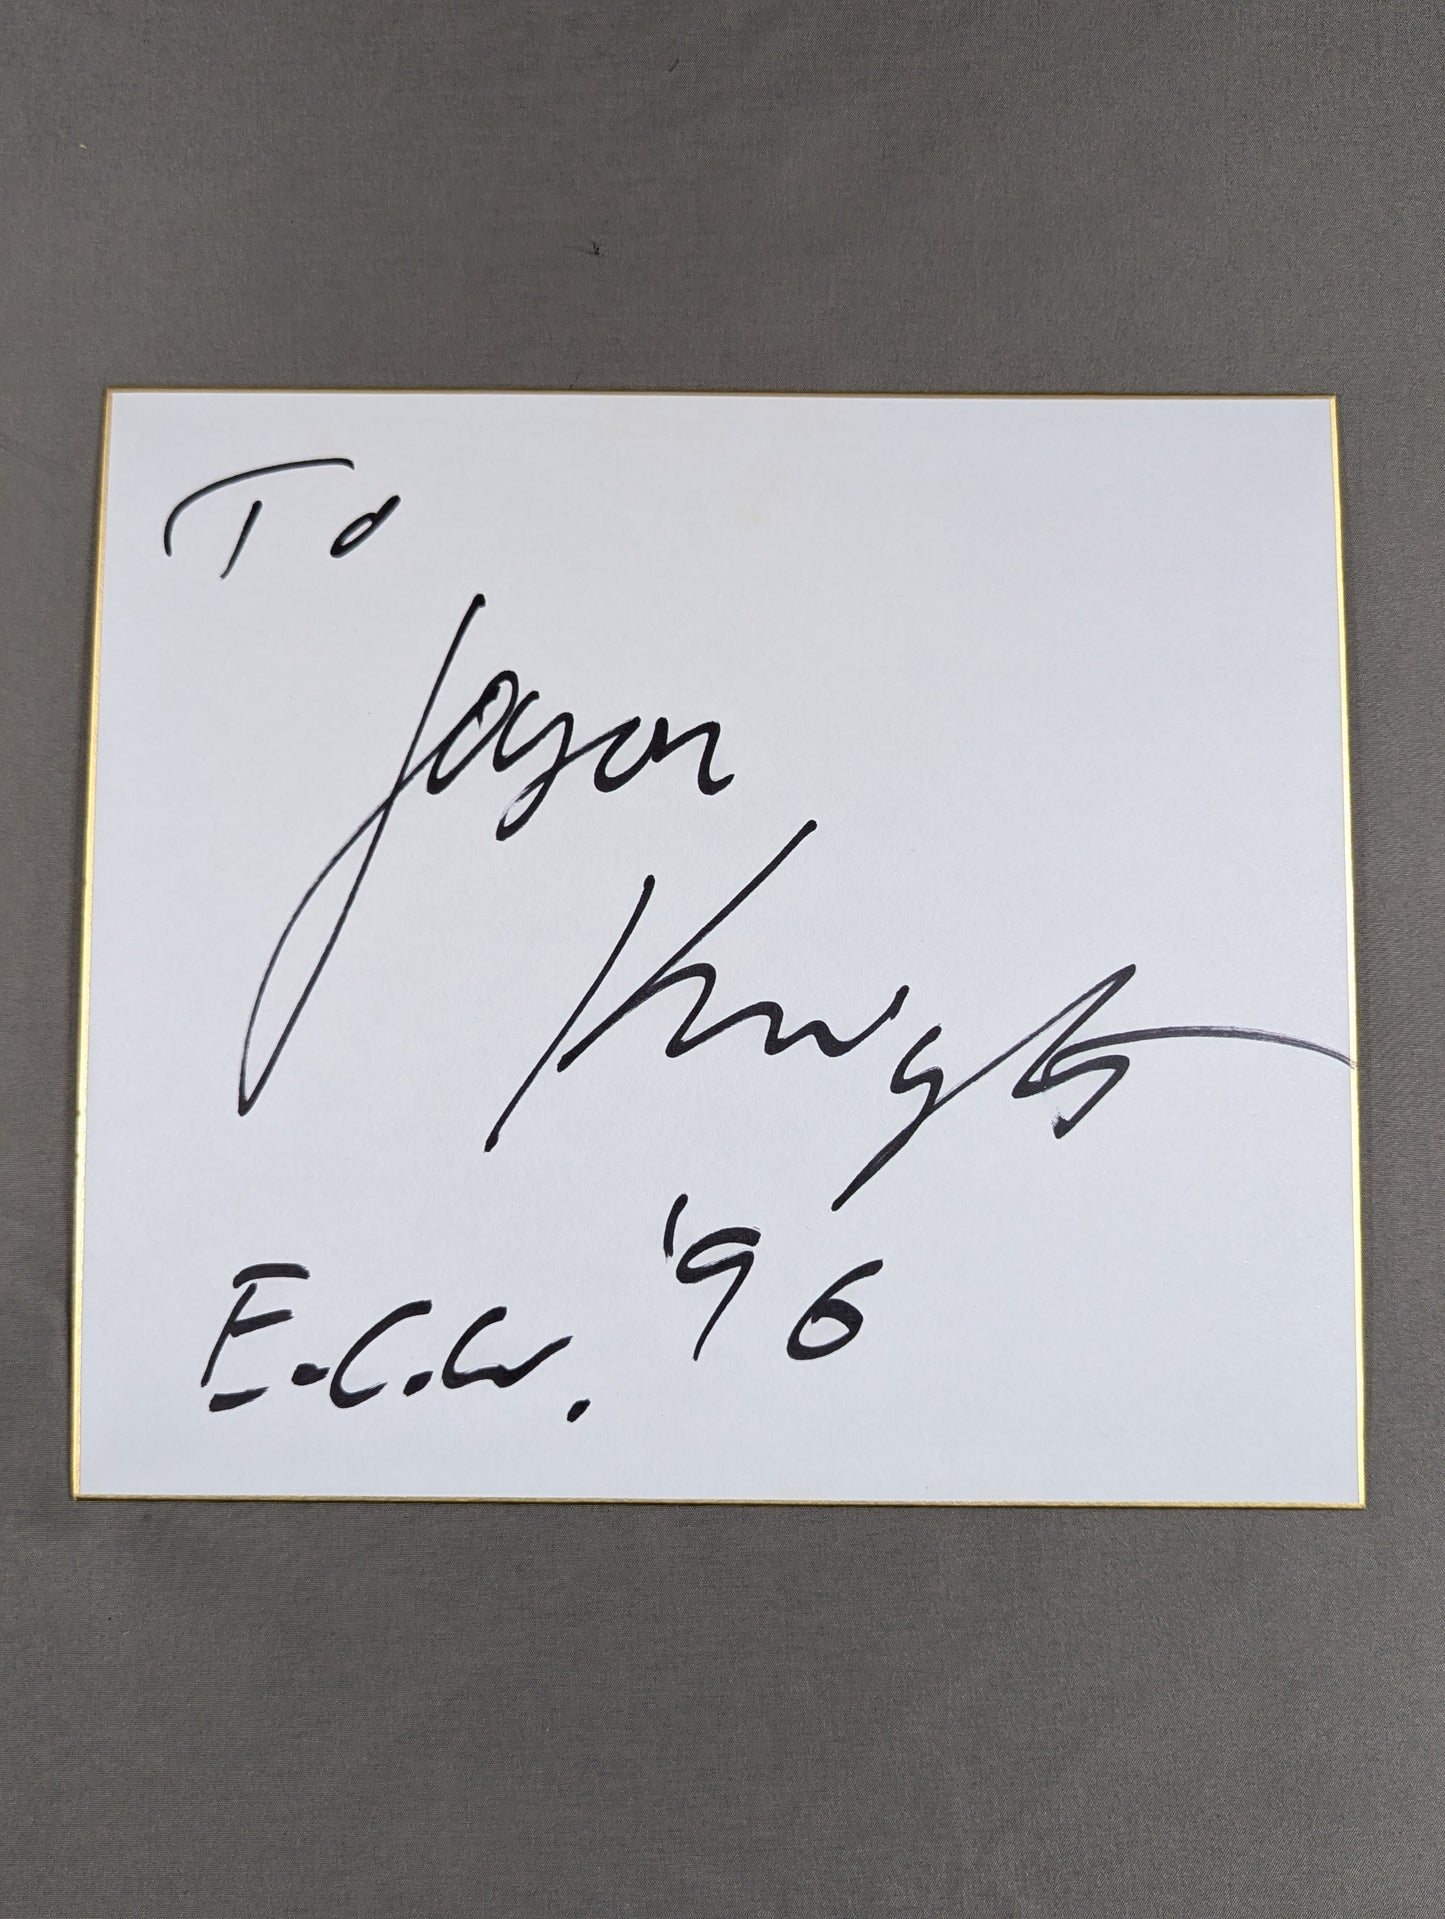 To
Jason
Knight
E.C.W. '96